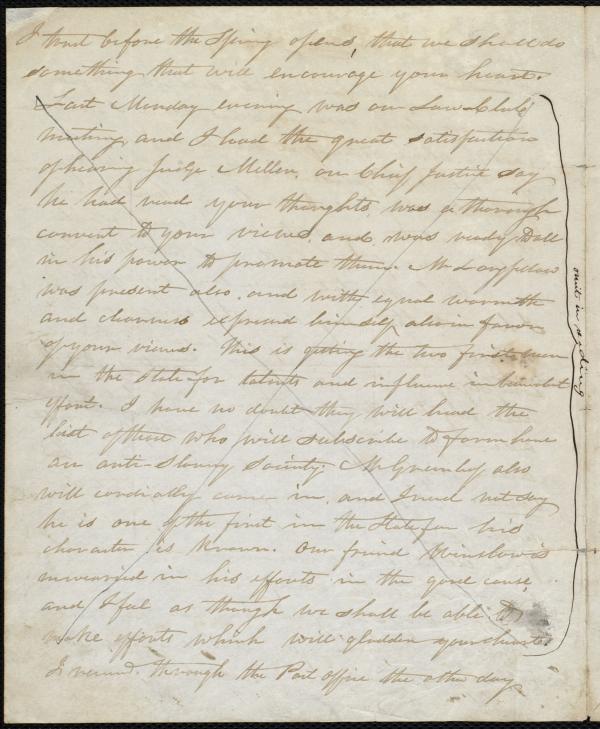 I trust before the Spring opens, that we shall do
something that will encourage your heart.
Last Monday evening was our Law Club
meeting, and I had the great satisfaction
of hearing Judge Mellen, our Chief Justice say
he had read your thoughts, was a thorough
convert to your views, and was ready to do all
in his power to promote them. Mr Longfellow
was present also, and with equal warmth
and clearness expressed himself also in favor
of your views. This is getting the two first men
in the State for talents and influence in benevolent
effort. I have no doubt they will head the
list of those who will subscribe to form here
an anti-Slavery Society. Mr Greenleaf also
will cordially come in, and I need not say
he is one of the first in the State for his
character is known. Our friend Winslow is
unwearied in his efforts in the good cause,
and I feel as though we shall be able to
make efforts which will gladden your heart.
I received through the Post office the other day
omit in reading